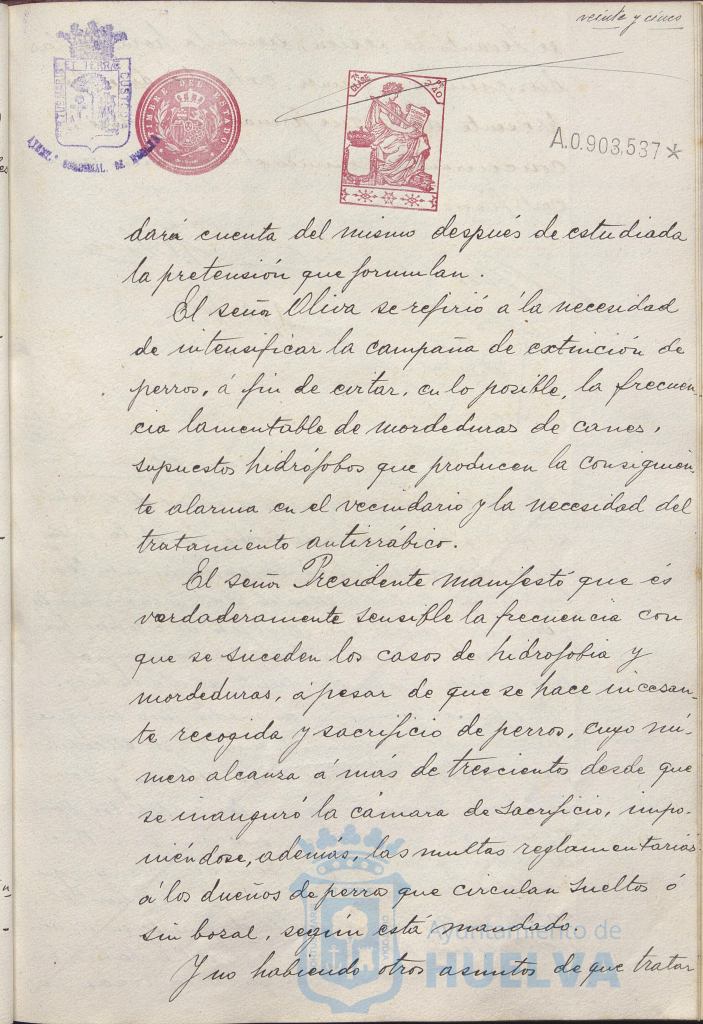 veinte y cinco
PORTUS MARIS ET TERRÆ CUSTODIA
AYUNT. CONSTITUCIONAL. DE HUELVA
TIMBRE DEL ESTADO
7ª CLASE
A.0.903,537*
dará cuenta del mismo después de estudiada
la pretensión que formulan.
El señor Oliva se refirió á la necesidad
de intensificar la campaña de extinción de
perros, á fin de evitar, en lo posible, la frecuen-
cia lamentable de mordeduras de canes,
supuestos hidrófobos que producen la consiguien-
te alarma en el vecindario y la necesidad del
tratamiento antirrábico.
El señor Presidente manifestó que és
verdaderamente sensible la frecuencia con
que se suceden los casos de hidrofobia y
mordeduras, á pesar de que se hace incesan-
te recogida y sacrificio de perros, cuyo nú-
mero alcanza á más de trescientos desde que
se inauguró la cámara de sacrificio, impo-
niéndose, además, las multas reglamentarias
á los dueños de perros que circulan sueltos ó
sin bozal, según está mandado.
Y no habiendo otros asuntos de que tratar
Ayuntamiento de
HUELVA